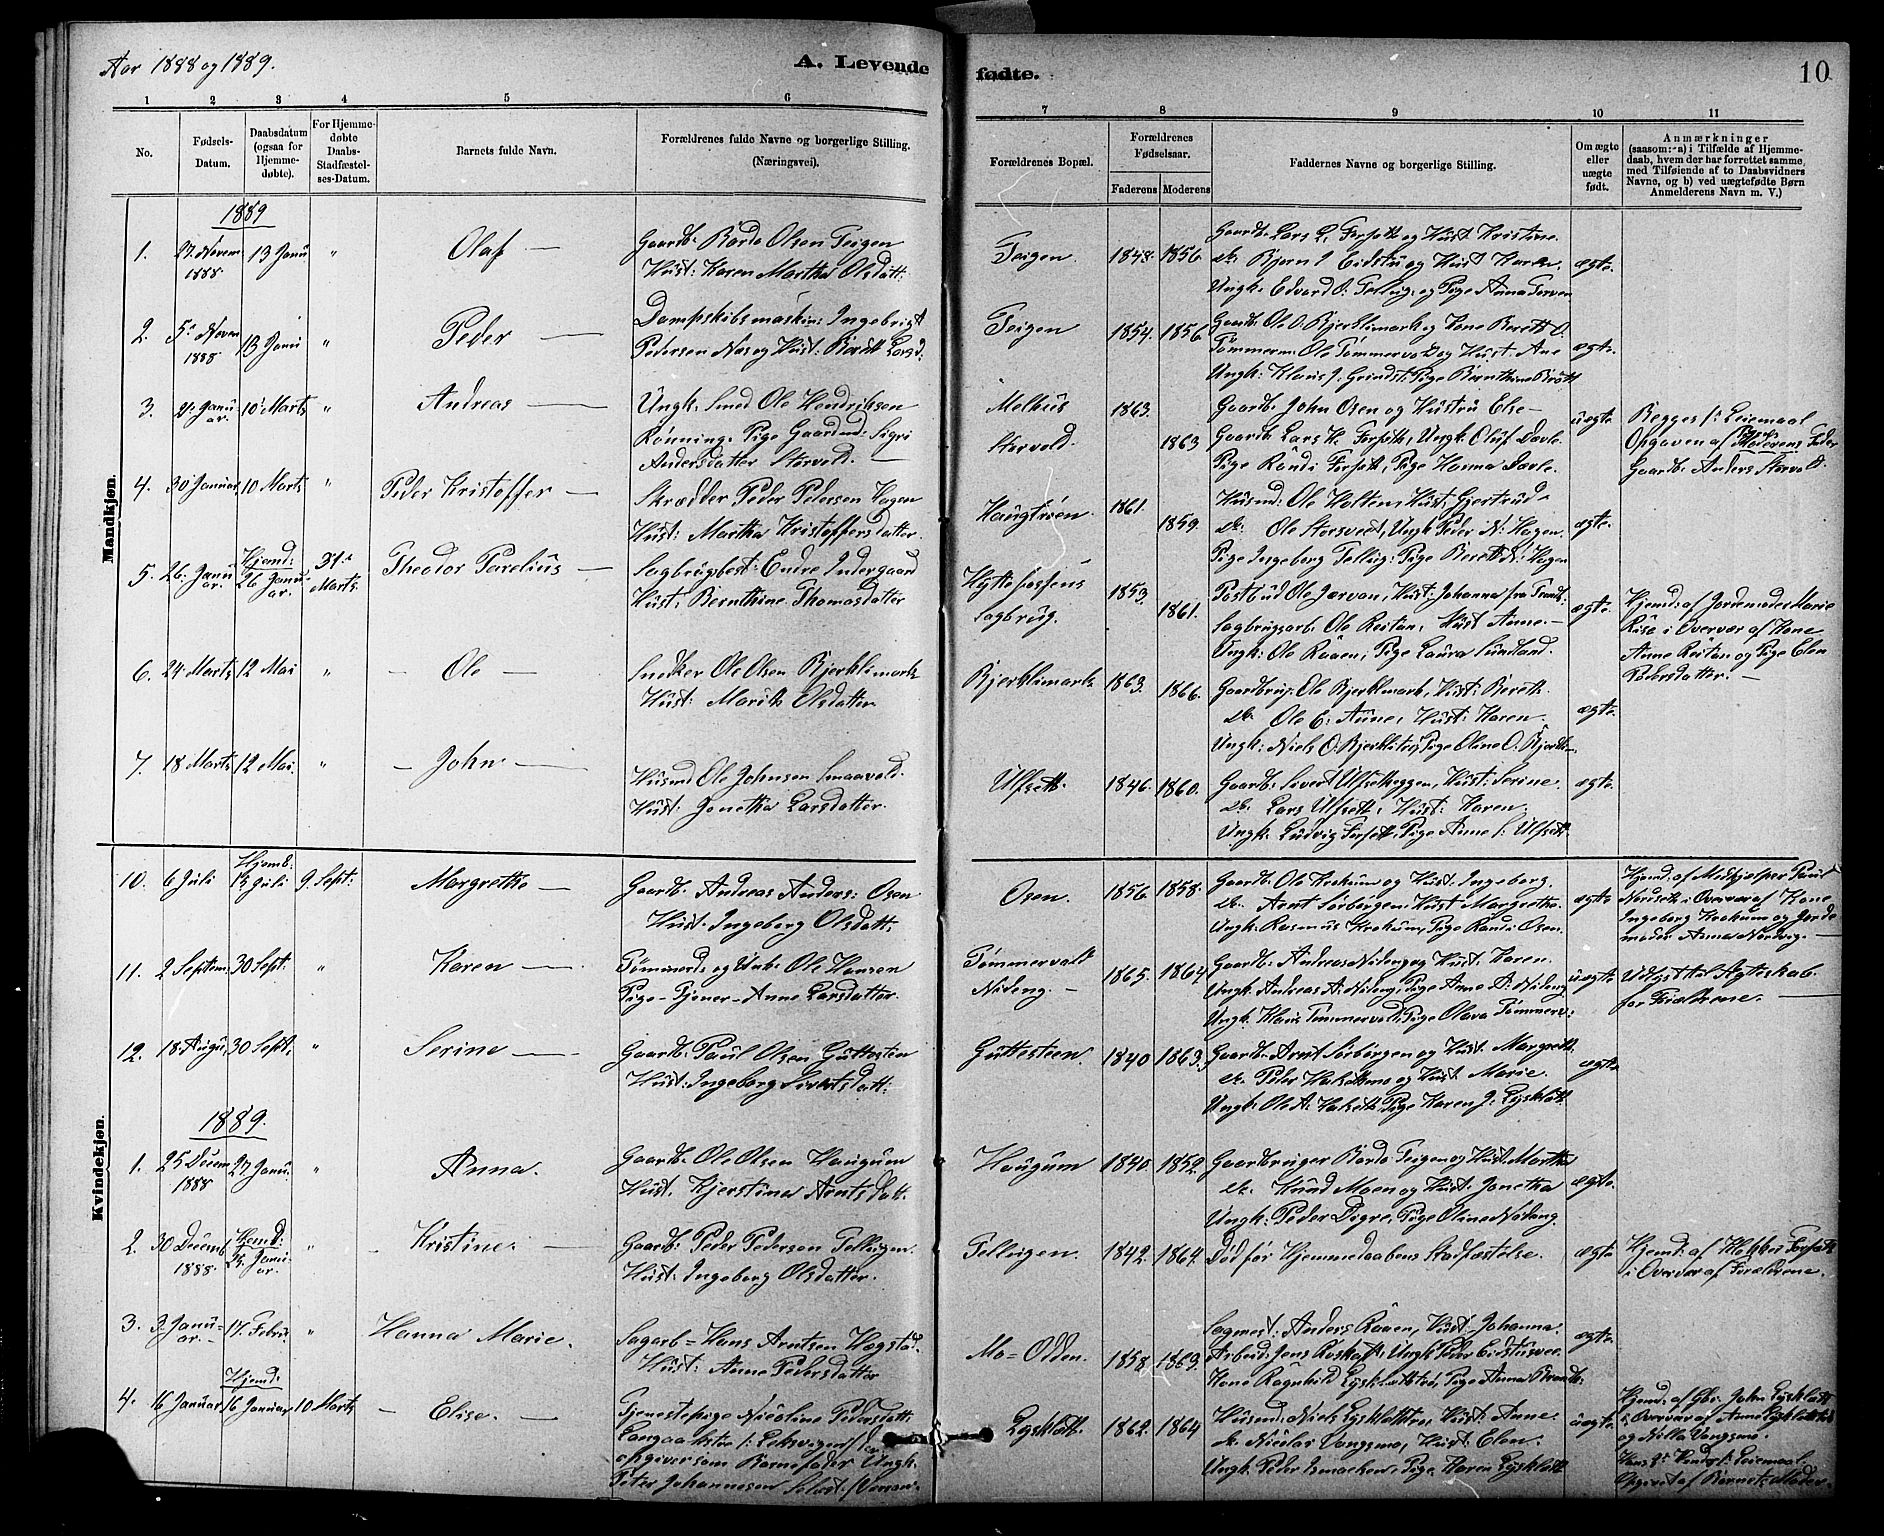 Aar 1888 og 1889.
A. Levende
fødte.
10
1 2 3 4 5 6 7 8 9 10 11
No.
Fødsels-
Datum.
Daabsdatum
(ogsaa for
Hjemme-
døbte).
For Hjemme-
døbte
Daabs-
Stadfæstel-
ses-Datum.
Barnets fulde Navn.
Forældrenes fulde Navne og borgerlige Stilling.
(Næringsvei).
Forældrenes Bopæl.
Forældrenes
Fødselsaar.
Faderens Moderens
Faddernes Navne og borgerlige Stilling.
Om ægte
eller
uægte
født.
Anmærkninger
(saasom: a) i Tilfælde af Hjemme-
daab, hvem der har forrettet samme,
med Tilføiende af to Daabsvidners
Navne, og b) ved uægtefødte Børn
Anmelderens Navn m. V.)
Mandkjøn.
1889
1. 27. Novem 1888. 13 Janu " Olaf
Gaardb: Bardo Olsen Teigen
Hust: Karen Martha Olsdatt:
Teigen. 1848. 1856.
Gaardb: Lars L. Forseth og Hust Kristine.
do. Bjørn J Eidstu og Hust Karen.
Ungk: Edvard O: Tellvig. og Pige Anna
ægte.
2. 5 Novem 1888. 13 Janu " Peder
Dampskibsmaskin: Ingebrigt
Pedersen Næs og Hust: Beret Larsd.
Teigen 1854. 1856
Gaardb: Ole O: Bjerklimark og Kone Berett O.
Tømmerm: Ole Tømmervold og Hust: Ane
Ungk: Klaus J. Grindst: Pige Bernthine
ægte.
3. Janu ar. 10 Marts " Andreas
Ungk: Smed Ole Hendriksen
Rønning. Pige Gaardmd: Sigri
Andersdatter Storvold.
Melhus 1863.
Storvold. 1863
Gaardb: John Osen og Hustru Else
Gaardb Lars K. Forseth, Ungk: Oluf Davle.
Pige Randi Forseth, Pige Hanna Davle.
uægte
Begges 1: Leiemaal
Opgaven af Moderens Fader
Gaardb: Anders Storvold.
4. 30 Januar, 10 Marts " Peder Kristoffer
Skrædder Peder Pedersen Hagen
Hust: Martha Kristoffersdatter.
Haugtrøen. 1861. 1859.
Husmd: Ole Holtem, Hust: Gjertrud
do. Ole Storsveet, Ungk Peder N: Hagen.
Pige Ingeborg Tellvig. Pige Berett N: Hagen
ægte.
5. 26. Janu ar. Hjemd: 26 Janu ar. 31. Marts. Theodor Parelius
Sagbrugbest: Endre Indergaard
Hust: Bernthine Thomasdatter
Hyttefossens
Sagbrug. 1853. 1861.
Postbud Ole Jærvan, Hust: Johanna fra
Sagbrugsarb. Ole Reitan, Hust Anne.
Ungk: Ole Raaen, Pige Laura Sundland.
ægte.
Hjemd: af Jordemoder Marie
Riise i Overvær af Kone
Anne Reitan og Pige Elen
Pedersdatter.
6. 24 Marts, 12 Mai " Ole
Snedker Ole Olsen Bjerklimark
Hust: Marith Olsdatter.
Bjerklimark 1863. 1866.
Gaardbrug: Ole Bjerklimark, Hust: Bereth.
do. Ole E. Aune, Hust: Karen.
Ungk: Niels O. Bjerklitrø, Pige Oline O. Bjerkl
ægte.
7. 18 Marts 12 Mai. " John
Husmd Ole Johnsen Smaavold.
Hust: Jonetha Larsdatter.
Ulfseth. 1846. 1860.
Gaardb: Sivert Ulfsetheggen, Hust: Serine.
do. Lars Ulfseth, Hust: Karen.
Ungk: Ludvig Forseth, Pige Anne S: Ulfseth
ægte.
Kvindekjøn.
10. 6 Juli Hjemd. 13 Juli 9. Sept: Margrethe
Gaardb: Andreas Anders: Osen
Hust: Ingeborg Olsdatt:
Osen. 1856. 1858.
Gaardb: Ole Krokum og Hust: Ingeborg.
do. Arnt Sørborgen, Hust Margrethe.
Ungk: Rasmus Krokum, Pige Randi Osen.
ægte
Hjemd: af Medhjælper Paul
i Overvær af Kone
Ingeborg Krokum og Jorde
moder Anna Nordvig.
11. 2 Septem. 30 Sept. " Karen
Tømmerds og Unk: Ole Hansen
Pige Tjener Anne Larsdatter.
Tømmervold
Nideng. 1865. 1864
Gaardb: Andreas Nideng og Hust Karen.
Ungk: Andreas A: Nideng, Pige Anne A: Nideng
Ungk: Klaus Tømmervold, Pige Olava Tømmerv:
uægte
Udlyst til Ægteskab
for Forældrene.
12. 18. Augu. 30 Sept. " Serine
Gaardb: Paul Olsen Guttesteen
Hust: Ingeborg Sivertsdatt:
Guttesteen 1840 1863.
Gaardb: Arnt Sørborgen og Hust Margreth.
do. Peder og Hust: Marie.
Ungk: Ole A: Pige Karen J: Lyskløtt
ægte.
1889.
1. 25 Decem 1888 27 Janu. " Anna.
Gaardb: Ole Olsen Haugum
Hust: Kjerstine Arntsdatt.
Haugum 1840. 1852.
Gaardbruger Bardo Teigen og Hust: Martha
do. Knud Moen og Hust: Jonetha
Ungk: Peder Digre, Pige Oline Nideng.
ægte.
2. 30 Decemb 1888 Hjemd: 25. Janu ar. " Kristine.
Gaardb: Peder Pedersen Tellvigen.
Hust: Ingeborg Olsdatter.
Tellvigen. 1842. 1864.
Død før Hjemmedaabens Stadfæstelse.
ægte
Hjemd: af Forseth
i Overvær af Forældrene.
3. 3. Janu ar. 17. Febru " Hanna Marie.
Sagarb = Hans Arntsen Hægstad.
Hust: Anne Pedersdatter
Mo=Olden. 1858. 1863.
Sagmest: Anders Raaen, Hust: Johanna.
Arbeid: Jens Ungk Peder Eidstusvee.
Kone Ragnhild Lyskløtttrø, Pige Anna
ægte.
4. 16 Januar Hjemd: 16 Januar, 10 Marts Elise.
Tjenestepige Nicoline Pedersdatt:
Langaakster f: Leksvigen
opgiver som Barnefader Ungk.
Peter Johannesen
Lyskløtt. 1862. 1864
Husmd: Niels Lyskløtttrø, Hust: Anne.
do. Nicolai Vangsmo, Hust: Elen.
Ungk: Peder Pige Karen Lyskløtt
uægte
Hjemd: af Gbr: John Lyskløtt
i Overvær af Anne Lyskløtt
og Nilla Vangsmo.
Hans 2: Hendes 1: Leiemaal
Opgivet af Barnets Moder.